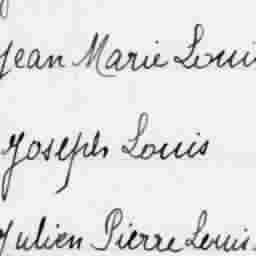 Jean Marie Louis
Joseph Louis
Julien Pierre Louis.